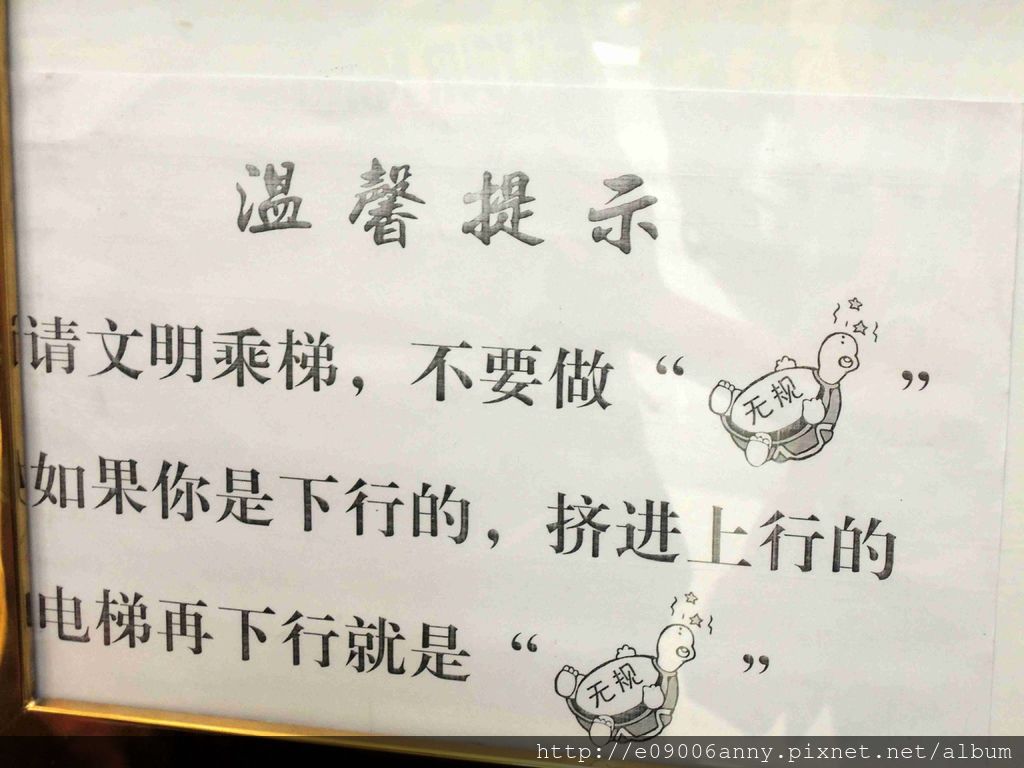 温馨提示
请文明乘梯，不要做“无规”
如果你是下行的，挤进上行的
电梯再下行就是“无规”
http://e09006anny.pixnet.net/album